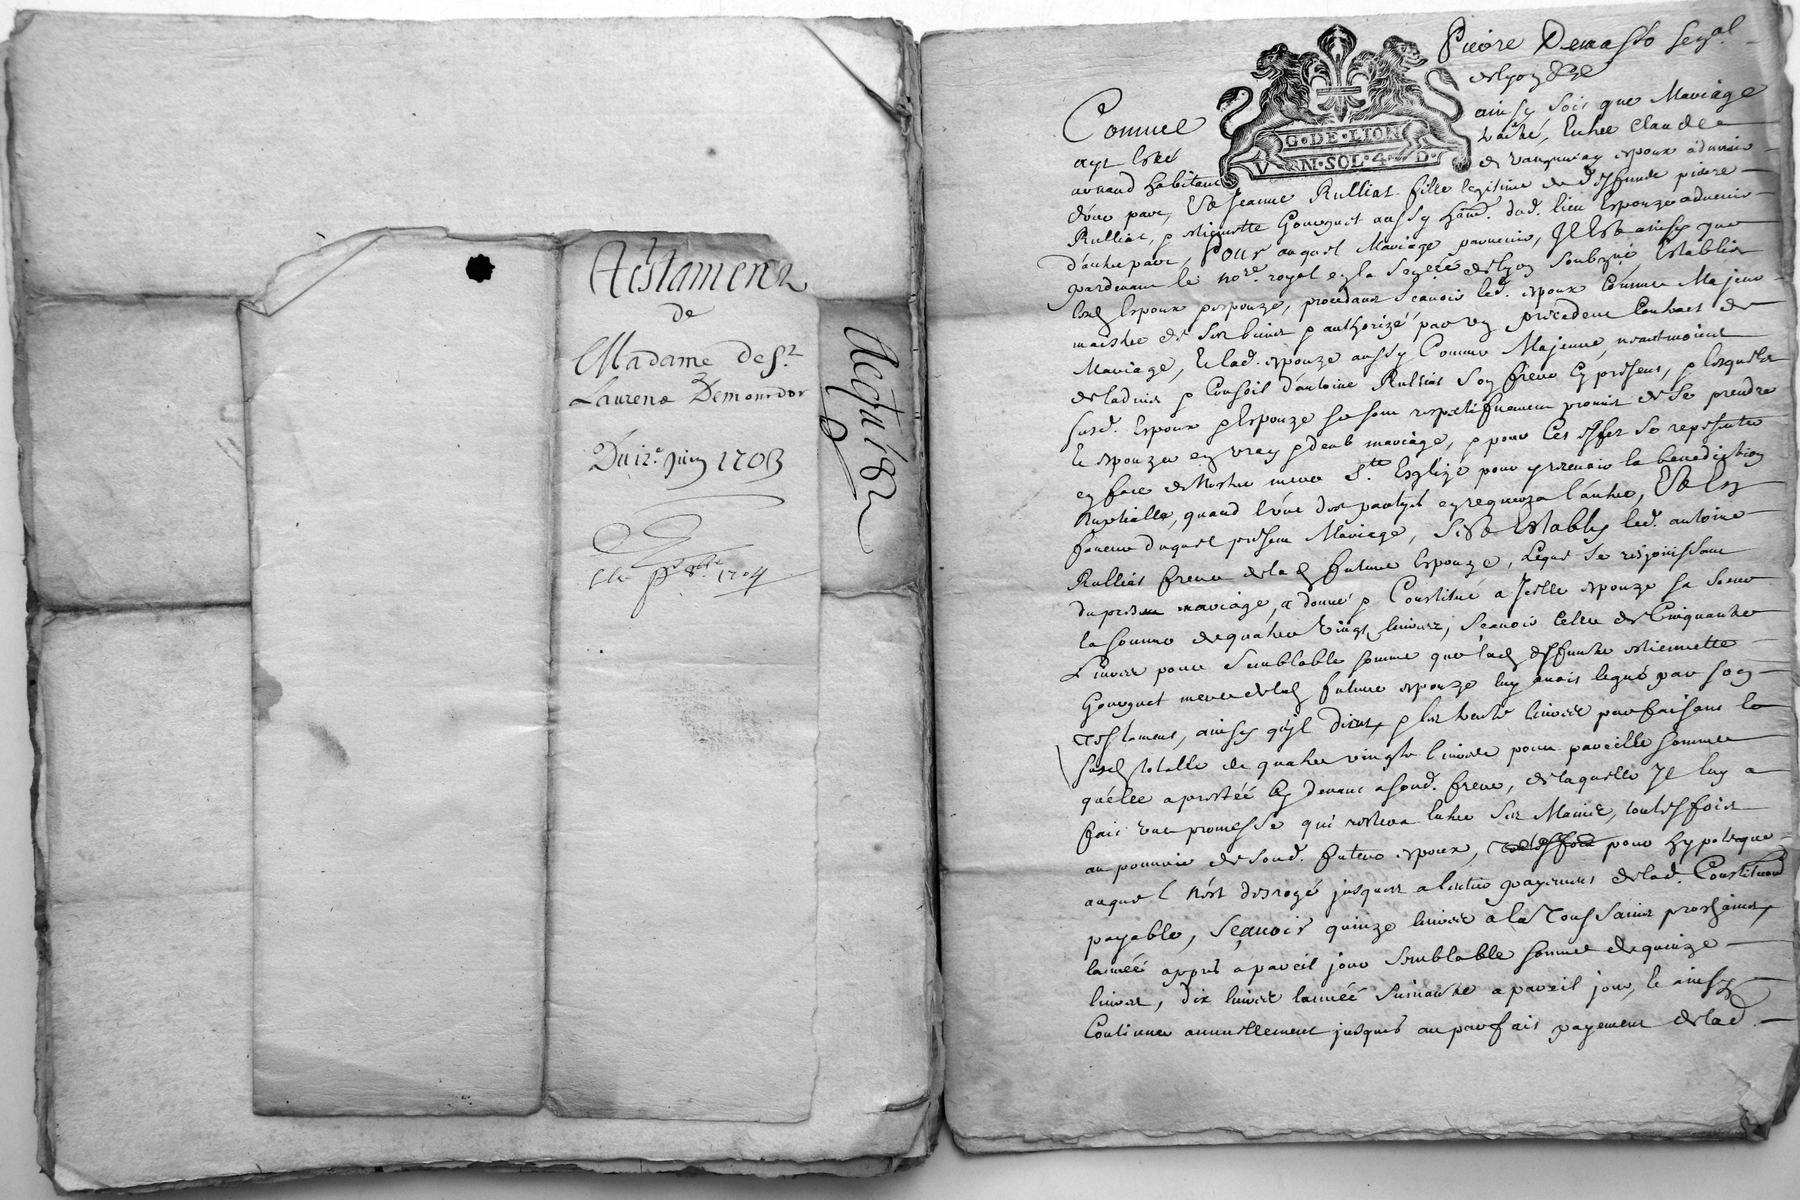 Testament
de
Madame de St
Laurens Demourdor
Du 12e Juin 1703
1704
Acqui 82
Pierre Demasso senal
de Lyon &a
G·DE·LION
VN·SOL·4·D·
Comme ainsy soit que Mariage
ayt esté traité, Entre Claude
arnaud habitant de espoux aduenir
d'vne part, Et Jeanne Rullias fille legitime de deffuncts pierre
Rullias, & Estiennette Gourguet aussy habitte dud. lieu Espouze aduenir
d'autre part, Pour auquel Mariage paruenir, Il est ainsy que
pardeuant le nore royal en la Senecée de Lyon soubzné Establis
lesd Espoux & espouze, procedans scauoir led. espoux Comme Majeur
maistre de ses biens & authorizé par un precedent Contract de
Mariage, Et lad. espouze aussy Comme Majeure, neantmoins
de ladvis & Conseil d'antoine Rullias son frere Cy present, & lesquels
susd. Espoux & Espouze se sont respectifuement promis de se prendre
& espouzer en vray & deub mariage, & pour ces effet se representer
en face de Nostre mere Ste Esglize pour y receuoir la benediction
Nuptialle, quand l'vne des partyes en requerra l'autre, Et en
faueur duquel present Mariage, s'est Estably led. antoine
Rullias frere de lad future Espouze, Lequel se resjouissant
du present mariage, a donné & Constitué a Jcelle espouze sa soeur
la somme de quatre vingt liures, scauoir celle de Cinquante
Liures pour semblable somme que lad deffunte Estiennette
Gourguet mere de lad future espouze luy auoit legué par son
Testament, ainsy qu'jl disent, & les trente liures parfaisant la
susd totalle de quatre vingts liures pour pareille somme
qu'elle a prestée Cy deuant a sond. frere, de laquelle Jl luy a
fait vne promesse qui restera entre ses Mains, toutesfois
au pouuoir de sond. futur espoux, toutesfois pour hypoteque
auquel n'est desrogé jusques a l'entier payement de lad. Constitution
payable, scauoir quinze liures a la Toussaints prochaine,
lannée appres a pareil jour semblable somme de quinze
liures, dix liures lannée suiuante a pareil jour, & ainsy
Continuer annuellement jusques au parfait payement de lad.